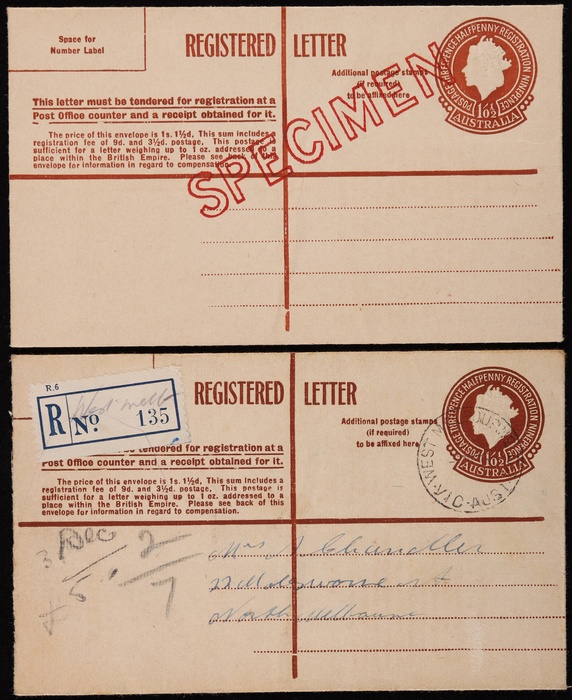 Space for
Number Label
REGISTERED LETTER
Additional postage stamps
(if required)
to be affixed here
POSTAGE THREEPENCE HALFPENNY REGISTRATION NINEPENCE
1/0½
AUSTRALIA
SPECIMEN
This letter must be tendered for registration at a
Post Office counter and a receipt obtained for it.
The price of this envelope is 1s. 1½d. This sum includes
registration fee of 9d. and 3½d. postage. This postage is
sufficient for a letter weighing up to 1 oz. addressed to a
place within the British Empire. Please see back of this
envelope for information in regard to compensation.
R.6
R No. 135
West Melb
REGISTERED LETTER
Additional postage stamps
(if required)
to be affixed here
POSTAGE THREEPENCE HALFPENNY REGISTRATION NINEPENCE
1/0½
AUSTRALIA
WEST M
VIC-AUST
tendered for registration at a
Post Office counter and a receipt obtained for it.
The price of this envelope is 1s. 1½d. This sum includes a
registration fee of 9d. and 3½d. postage. This postage is
sufficient for a letter weighing up to 1 oz. addressed to a
place within the British Empire. Please see back of this
envelope for information in regard to compensation.
3 Dec 2
5 7
Mrs J Chandler
22 Molesworth St
North Melbourne